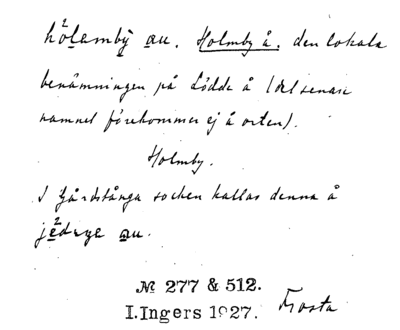 hólambȳ au. Holmby å, den lokala
benämningen på Lödde å (det senare
namnet förekommer ej å orten).
Holmby.
I Gårdstånga socken kallas denna å
au.
№ 277 & 512.
I.Ingers 1927. Frosta